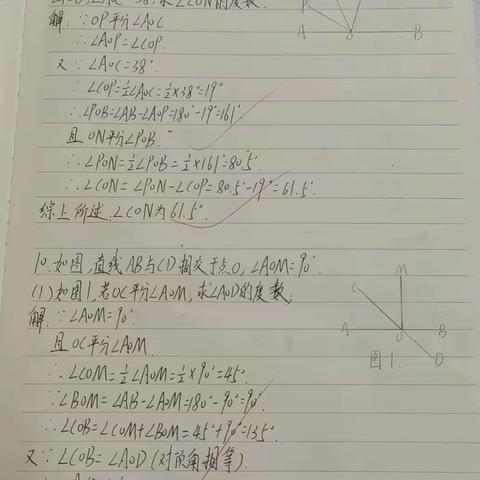 求∠CON的度数.
解: ∵OP平分∠AOC.
∴∠AOP=∠COP.
又∵∠AOC=38°.
∴∠COP=½∠AOC=½×38°=19°
∴∠POB=∠AB-∠AOP=180°-19°=161°
且ON平分∠POB.
∴∠PON=½∠POB=½×161°=80.5°
∴∠CON=∠PON-∠COP=80.5°-19°=61.5°.
综上所述.∠CON为61.5°.
P
A
O
B
10.如图,直线AB与CD相交于点O,∠AOM=90°.
(1)如图1,若OC平分∠AOM,求∠AOD的度数;
解: ∵∠AOM=90°.
且OC平分∠AOM.
∴∠COM=½∠AOM=½×90°=45°.
∵∠BOM=∠AB-∠AOM=180°-90°=90°.
∴∠COB=∠COM+∠BOM=45°+90°=135°
又∵∠COB=∠AOD(对顶角相等).
M
C
A
O
B
D
图1.